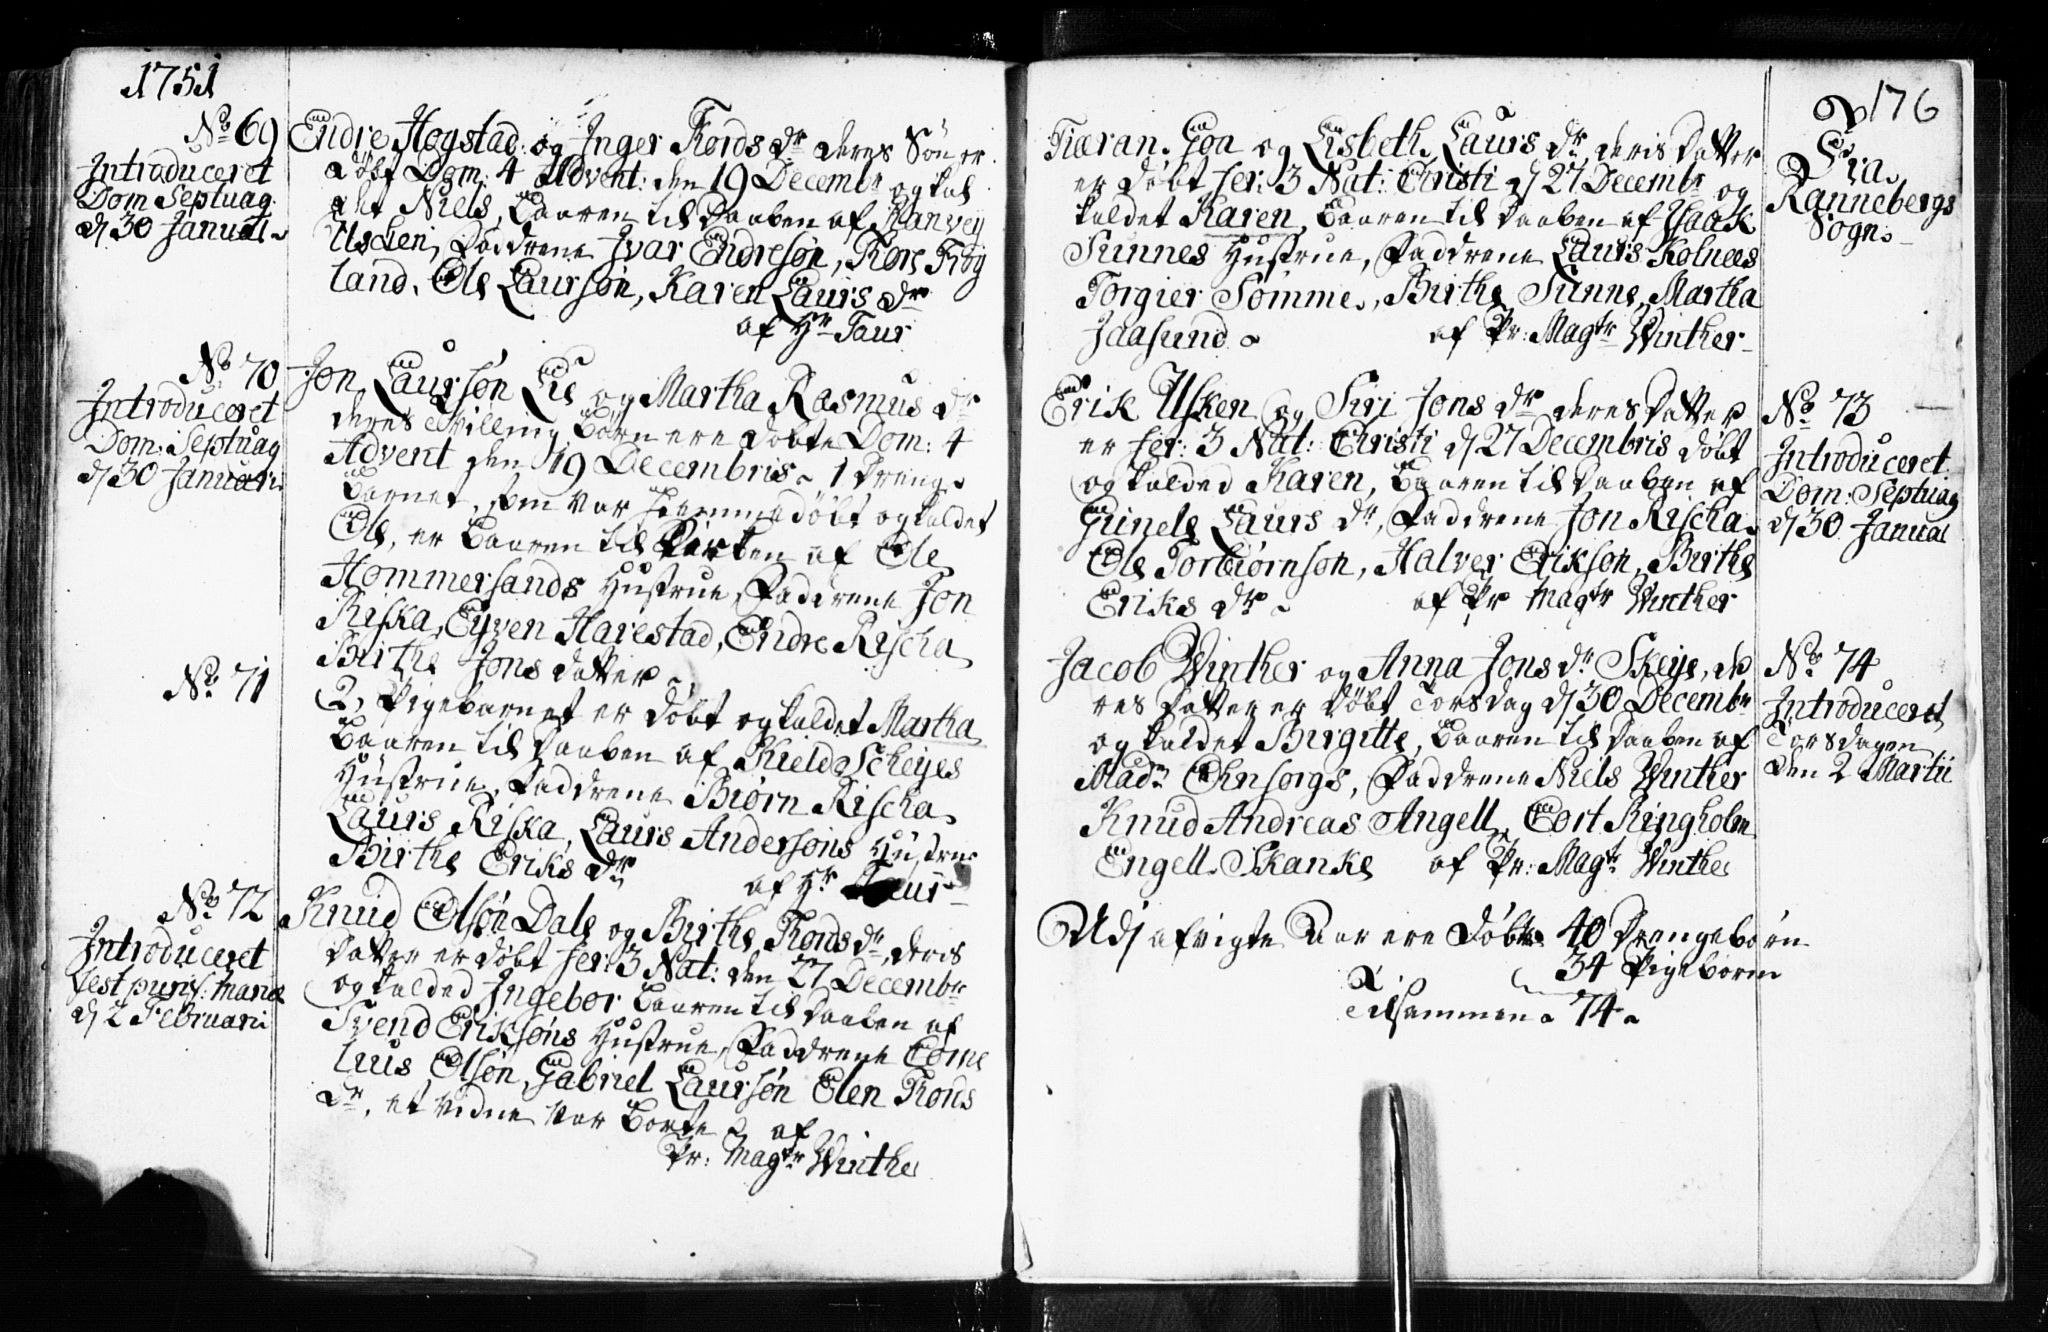 1751
No 69
Introduceret
Dom Septuag:
d 30 Januari
Endre Høgstad og Inger Tords dr deres Søn er
døbt Dom: 4 Advent: den 19 Decembr og kal
det Niels, baaren til Daaben af Ranvey
Uschen, Faddrene Ivar Endresøn, Tore Røy
land, Ole Laursøn, Karen Laurs dr
af Hr Taur
No 70
Introduceret
Dom: Septuag
d 30 Januarii
Jon Laursøn Lie og Martha Rasmus dr
deres Tvilling Børn ere døbte Dom: 4
Advent den 19 Decembris 1 Drenge
Barnet, som var hiemmedøbt og kaldet
Ole, er baaren til Kirken af Ole
Hommersands Hustrue, Faddrene Jon
Riska, Eyven Harestad, Endre Rischa
Birthe Jons datter
No 71
2, Pigebarnet er døbt og kaldet Martha
baaren til Daaben af Kield Scheyes
Hustrue, Faddrene Biørn Rischa
Laurs Riska, Laurs Andersøns Hustrue
Birthe Eriks dr
af Hr Taur
No 72
Introduceret
fest purif: Mariæ
d 2 Februarii
Knud Olsøn Dale og Birthe Tords dr deris
Datter er døbt fer: 3 Nat: den 27 Decembr
og kalded Ingebor baaren til Daaben af
Svend Eriksøns Hustrue, Faddrene Corne
lius Olsøn, Gabriel Laursøn Elen Tords
dr, et vidne var borte af
Pr: Magr Winther
176
Fra
Rannebergs
Sogn
Tiæran Goa og Lisbeth Laurs dr deris datter
er døbt fer: 3 Nat: Christi d 27 Decembr og
kaldet Karen, baaren til Daaben af Isaak
Sunnes Hustrue, Faddrene Laurs Kolnees
Torgier Sømme, Birthe Sunne, Martha
Jaasund
af Pr: Magr Winther
No 73
Introduceret
Dom: Septuag
d 30 Januar
Erik Usken og Siri Jons dr deres datter
er fer: 3 Nat: Christi d 27 Decembris døbt
og kalded Karen, baaren til Daaben af
Gunele Laurs dr, Faddrene Jon Rischa
Ole Torbiørnsøn, Halver Eriksøn, Birthe
Eriks dr
af Pr Magr Winther
No 74
Introduceret
Torsdagen
den 2 Martii
Jacob Winther og Anna Jons dr Skeye, de
res datter er døbt Torsdag d 30 Decembr
og kaldet Birgitte, baaren til Daaben af
Madm Ohnsorgs, Faddrene Niels Winther
Knud Andreas Angell, Cort Ringholm
Engell Skanke
af Pr: Magr Winther
Udj afvigte Aar ere døbte 40 Drengebørn
34 Pigebørn
Tilsammen 74